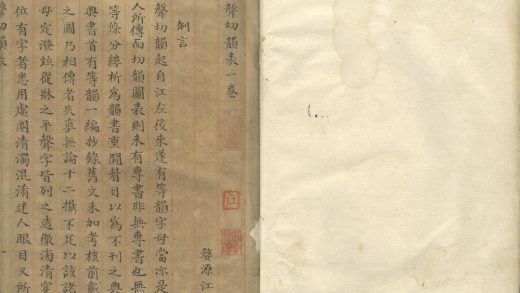 聲切韻表一卷
婺源江
例言
聲切韻起自江左後來遂有等韻字母當亦是
人所傳而切韻圖表則未有專書非無專書也無
等條分縷析為韻書重開聲目以為不刊之典
典書首有等韻一編抄錄舊文未加考核前載
之圖乃相傳者失真無論十二攝不足以該諸
母定澄竝從牀之平聲字皆列之透徹滂清穿
位有字者悉用虛圈清濁混淆迷人眼目又所
聲切韻表
一